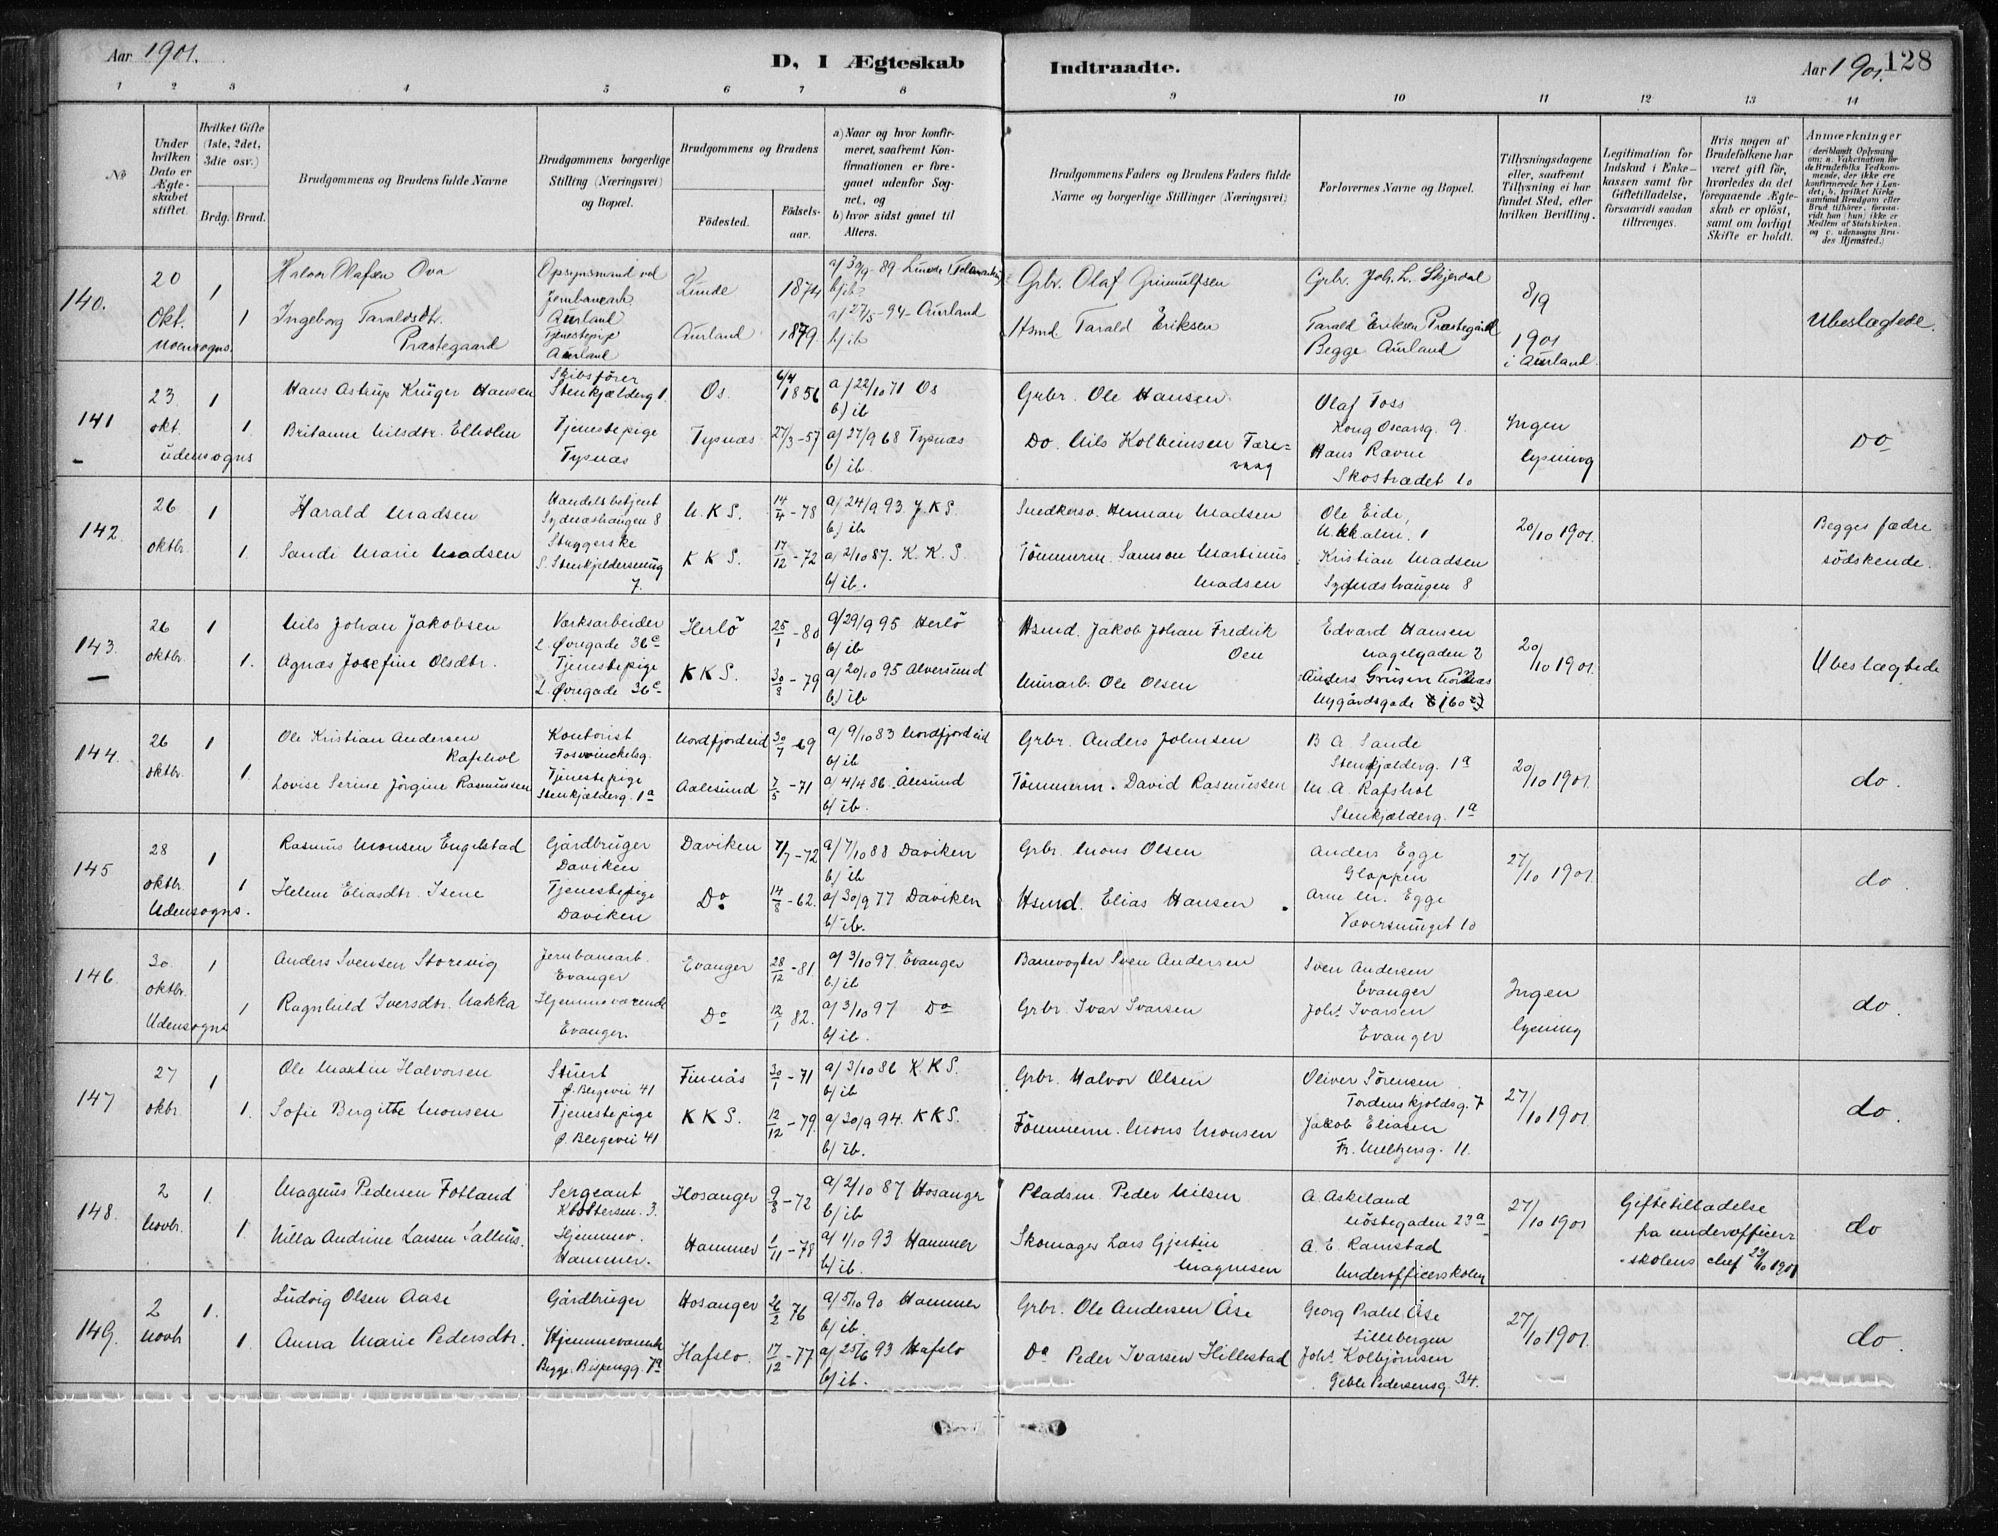 Aar 1901.
D, I Ægteskab
Indtraadte.
Aar 1901. 128
1 2 3 4 5 6 7 8 9 10 11 12 13 14
No
Under hvilken Dato er Ægteskabet stiftet.
Hvilket Gifte (1ste, 2det, 3die osv.)
Brdg. Brud.
Brudgommens og Brudens fulde Navne
Brudgommens borgerlige Stilling (Næringsvei) og Bopæl.
Brudgommens og Brudens
Fødested. Fødselsaar.
a) Naar og hvor konfirmeret, saafremt Konfirmationen er foregaaet udenfor Sognet, og
b) hvor sidst gaaet til Alters.
Brudgommens Faders og Brudens Faders fulde Navne og borgerlige Stillinger (Næringsvei)
Forlovernes Navne og Bopæl.
Tillysningsdagene eller, saafremt Tillysning ei har fundet Sted, efter hvilken Bevilling.
Legitimation for Indskud i Enkekassen samt for Giftetilladelse, forsaavidt saadan tiltrænges.
Hvis nogen af Brudefolkene har været gift før, hvorledes da det foregaaende Ægteskab er opløst, samt om lovligt Skifte er holdt.
Anmærkninger (deriblandt Oplysning om: a. Vakcination for de Brudefolks Vedkommende, der ikke ere konfirmerede her i Landet, b. hvilket Kirkesamfund Brudgom eller Brud tilhører, forsaavidt han (hun) ikke er Medlem af Statskirken, og c. udensogns Brudes Hjemsted.)
140.
20 Okt. Udensogns.
1
1
Halvor Olafsen Ova
Ingeborg Taraldsdtr. Præstegaard
Opsynsmand ved Jernbanearb. Aurland
Tjenestepige Aurland
Lunde 1874
Aurland 1879
89 Lunde i Telemarken
b/ ib.
a/ 27/5-94 Aurland
b/ ib
Grbr. Olaf Grimulfsen
Hsmd Tarald Eriksen
Grbr. Joh. L. Skjerdal
Tarald Eriksen Præstegård
Begge Aurland
8/9 1901 i Aurland
Ubeslægtede.
141
23 okt. udensogns
1
1
Hans Astrup Krüger Hansen
Britanne Nilsdtr. Elholm
Skibsfører Stenkjælderg 1.
Tjenestepige Tysnæs
Os. 6/4 1856
Tysnæs 27/3-57
a/ 22/10 71 Os
b) ib
a/ 27/9 68 Tysnæs
b) ib.
Grbr. Ole Hansen
Do. Nils Kolbeinsen Færevaag
Olaf Foss
Kong Oscarsg. 9.
Hans Ravne
Skostrædet 10
Ingen lysning
Do
142.
26 oktbr.
1
1.
Harald Madsen
Sandi Marie Madsen
Handelsbetjent Sydnæshaugen 8
Stuggerske S. Stenkjeldersmug 7.
N.K.S. 14/4-78
K K S. 17/12-72
a/ 24/9 93 J.K S.
b) ib.
a/ 2/10 87. K. K. S.
b/ ib.
Snedkersv. Herman Madsen
Tömmerm. Samson Martinus Madsen
Ole Eide,
N. kkalm. 1
Kristian Madsen
Sydnæshaugen 8
20/10 1901.
Begges fædre södskende.
143.
26 oktbr.
1
1.
Nils Johan Jakobsen
Agnæs Josefine Olsdtr.
Værksarbeider L. Øvregade 36c
Tjenestepige L. Øvregade 36c
Herlö 25/1-80
KKS. 30/8-79
a/ 29/9 95 Herlö
b/ ib
a/ 20/10 95 Alversund
b) ib
Hsmd. Jakob Johan Fredrik Oen
Murarb. Ole Olsen
Edvard Hansen
Nagelgaden 2
Nygårdsgade
20/10 1901.
Ubeslægtede
144.
26 oktbr.
1
1.
Ole Kristian Andersen Rafshol
Lovise Serine Jörgine Rasmussen
Kontorist Fosvinckelsg.
Tjenestepige Stenkjælderg. 1a
Nordfjordeid 30/7 69
Aalesund 7/5-71
a/ 9/10 83 Nordfjordeid
b/ ib
a/ 4/4 86. Ålesund
b/ ib.
Grbr. Anders Johnsen
Tömmerm. David Rasmussen
B A. Sande
Stenkjælderg. 1a
M. A. Rafshol
Stenkjælderg. 1a
20/10 1901.
do.
145
28 oktbr. Udensogns.
1
1
Rasmus Monsen Engelstad
Helene Eliasdtr. Isene
Gårdbruger Daviken
Tjenestepige Daviken
Daviken 7/7-72
Do 14/8-62.
a/ 7/10 88 Daviken
b/ ib.
a/ 30/9 77 Daviken
b/ ib.
Grbr. Mons Olsen
Hsmd. Elias Hansen
Anders Egge
Gloppen
Arne M. Egge
Væversmuget 10
27/10 1901.
do.
146.
30 oktbr. Udensogns
1
1
Anders Svensen Storevig
Ragnhild Iversdtr. Nakka
Jernbanearb. Evanger
Hjemmeværende Evanger.
Evanger 28/12-81
Do 12/1 82.
a/ 3/10 97. Evanger
b/ ib
a/ 3/10 97 Do
b/ ib.
Banevogter Sven Andersen
Grbr. Ivar Ivarsen
Sven Andersen
Evanger
Johs Ivarsen
Evanger
Ingen lysning
do.
147
27 okbr.
1
1.
Ole Martin Halvorsen
Sofie Bergitte Monsen
Stuert Ø. Blegevei 41
Tjenestepige Ø. Blegevei 41
Finnås 30/1-71
KKS. 12/12-79.
a/ 3/10 86 K.K S.
b/ ib
a/ 30/9 94. KKS.
b/ ib.
Grbr. Halvor Olsen
Tömmerm. Mons Monsen
Oliver Sörensen
Tordenskjoldsg. 7
Jakob Eliasen
Fr. Meltzersg. 11.
27/10 1901.
do.
148.
2 Novbr.
1.
1
Magnus Pedersen Fotland
Nilla Andrine Larsen Salhus.
Sergeant Klostersm. 3.
Hjemmev. Hammer.
Hosanger 9/8-72
Hammer 1/11-78
a/ 2/10 87 Hosangr
b/ ib
a/ 1/10 93 Hammer
b/ ib.
Pladsm. Peder Nilsen
Skomager Lars Gjertin Magnesen
A. Askeland
Nöstegaden 23a
A. E. Ramstad
Underofficerskolen
27/10 1901
Giftetilladelse fra underofficerskolens chef 23/10 1901
do
149.
2 Novbr
1.
1
Ludvig Olsen Aase
Anna Marie Pedersdtr.
Gårdbruger
Hjemmeværende
Begge: Bispengg. 7a
Hosanger 26/2 76
Hafslo. 17/12-77
a/ 5/10 90 Hammer
b/ ib.
a/ 25/6 93 Hafslo
b/ ib.
Grbr. Ole Andersen Åse
Do Peder Ivarsen Hillestad
Georg Prahl Åse
Lillebergen
Johs. Kolbjörnsen
Geble Pedersensg. 34.
27/10 1901.
do.